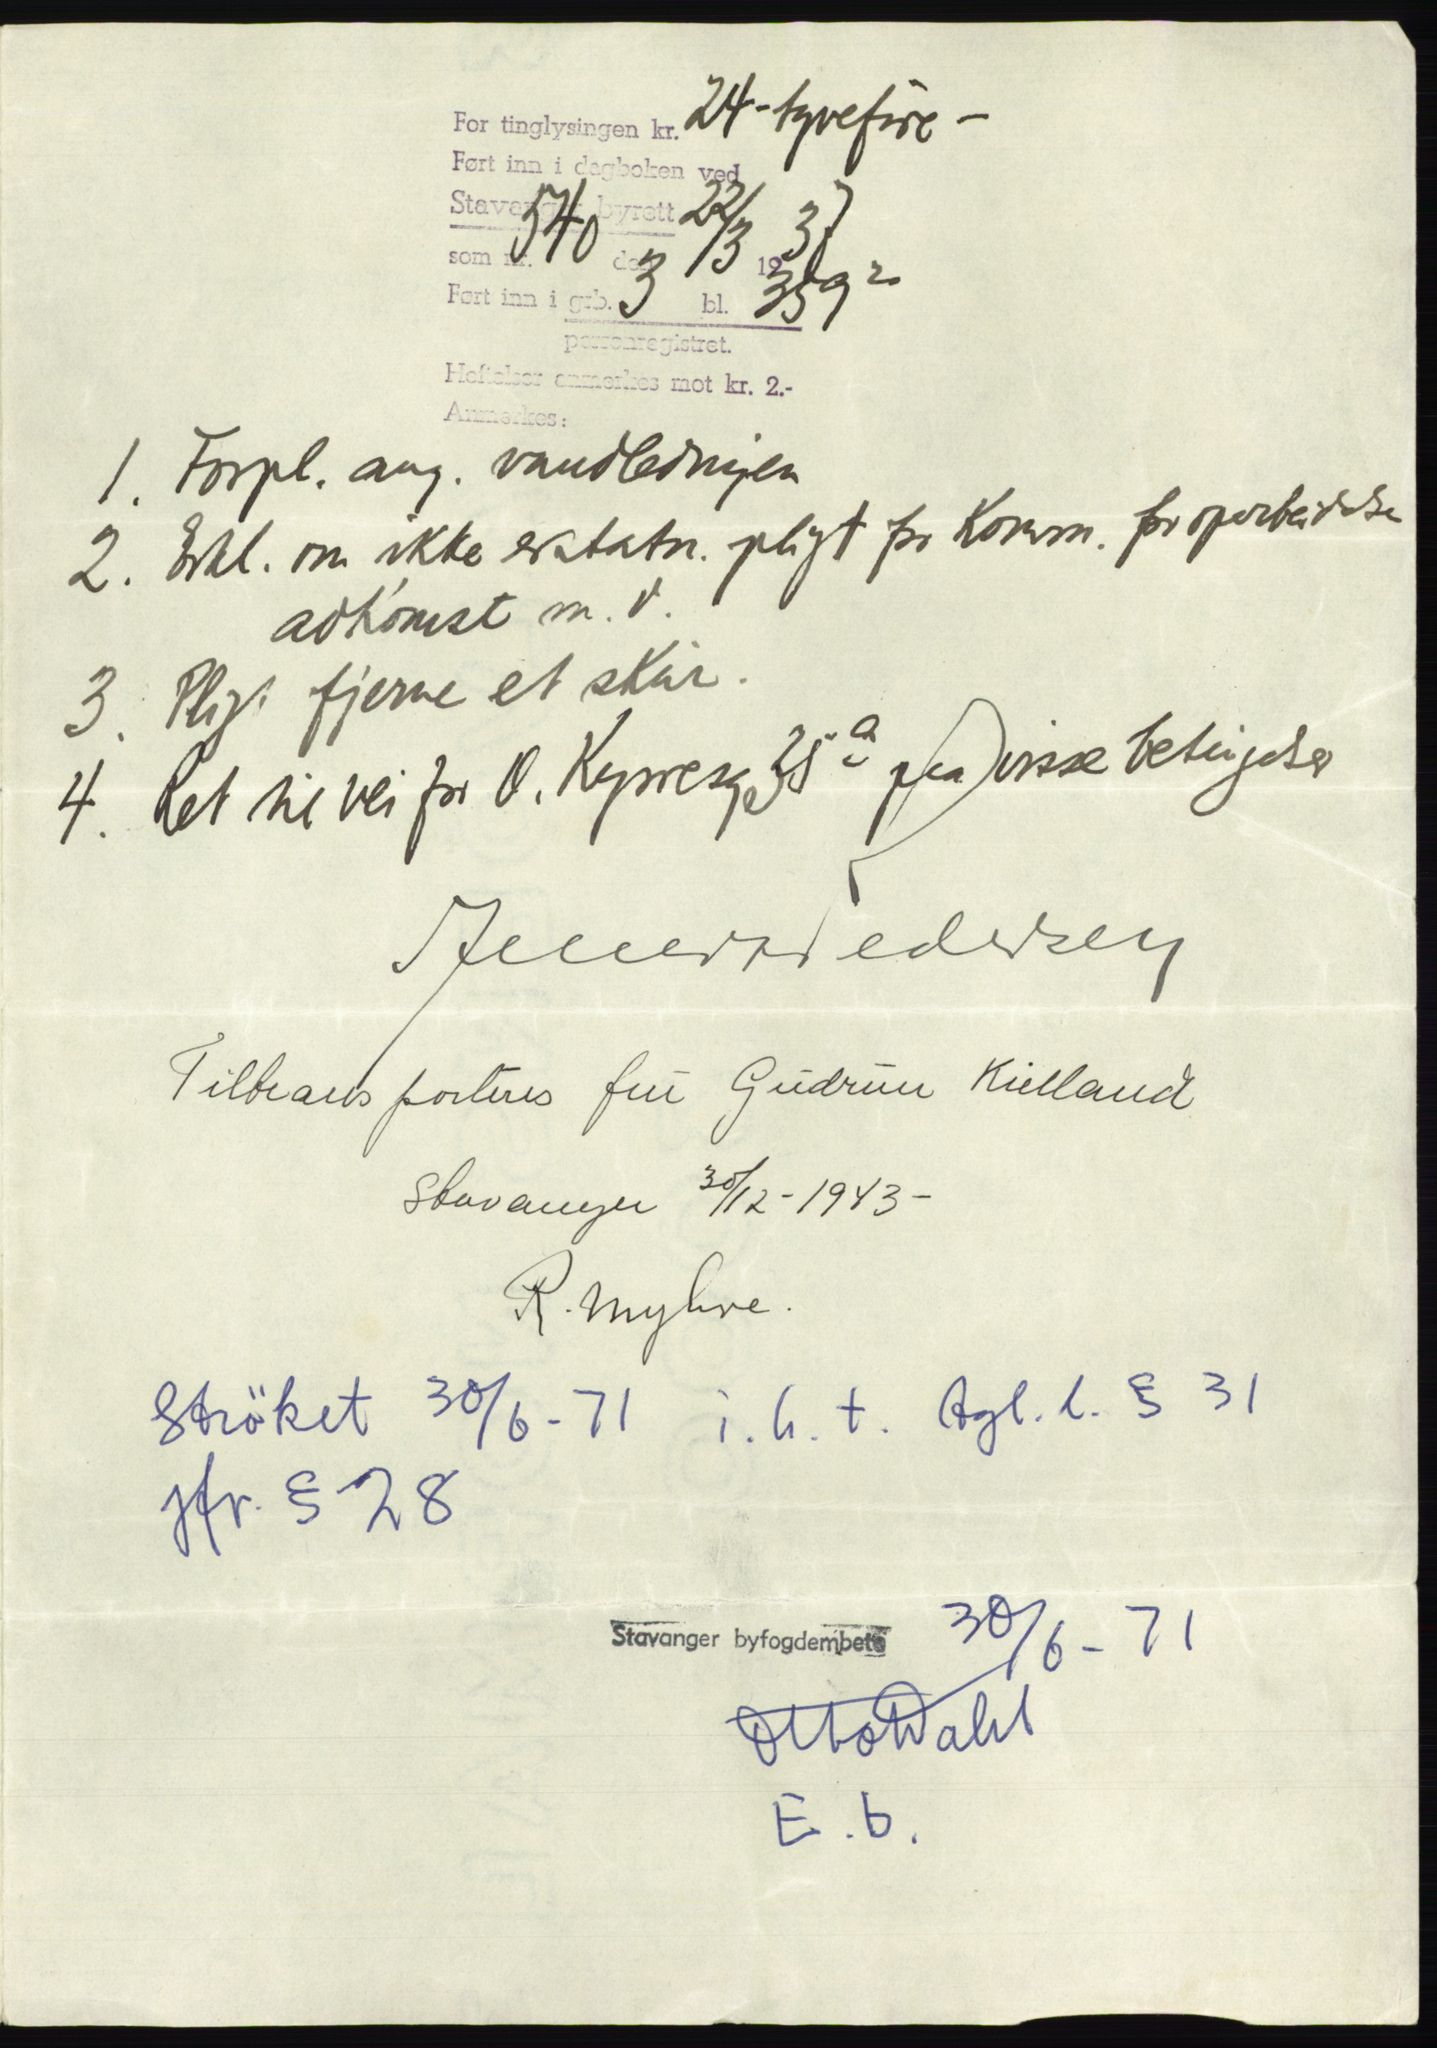 For tinglysingen kr. 24 - tyvefire -
Ført inn i dagboken ved
Stavanger byrett
som nr. 540 den 22/3 1937
Ført inn i grb. 3 bl. 359
personregistret.
Heftelser anmerkes mot kr. 2.-
Anmerkes:
1. Forpl. ang. vandledningen
2. Erkl. om ikke erstatn. pligt for Komm. for oparbeidelse
adkomst m. v.
3. Pligt fjerne et skur.
4. Ret til vei for Ø. 35 a paa visse betingelser
Tiltransporteres fru Gudrun Kielland
Stavanger 30/12 - 1943 -
R. Myhre.
Ströket 30/6 - 71 i. h. t. tgl. l. § 31
jfr. § 28
Stavanger byfogdembete 30/6 - 71
Otto Dahl
E. b.